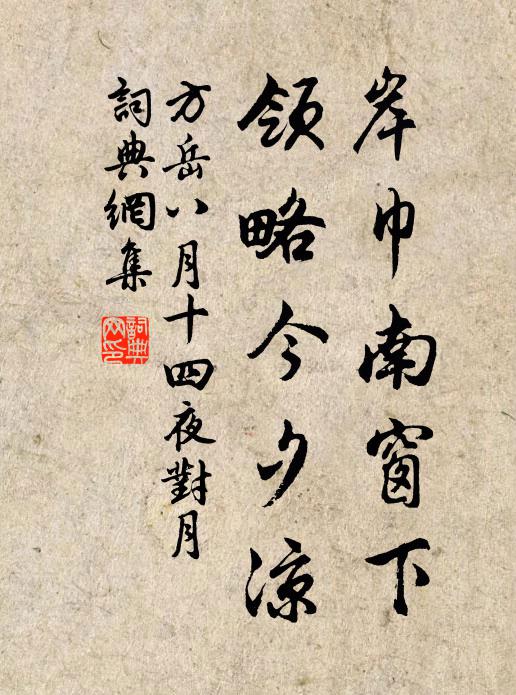 岸巾南窗下
領略今夕涼
方岳八月十四夜對月
詞典網集
詞典網印